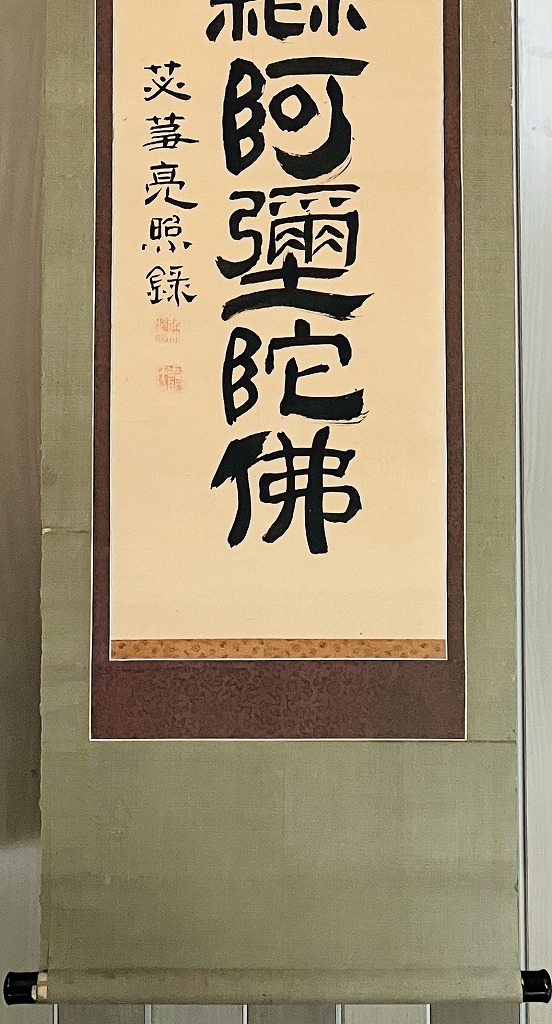 阿彌陀佛
苾蒭亮照錄